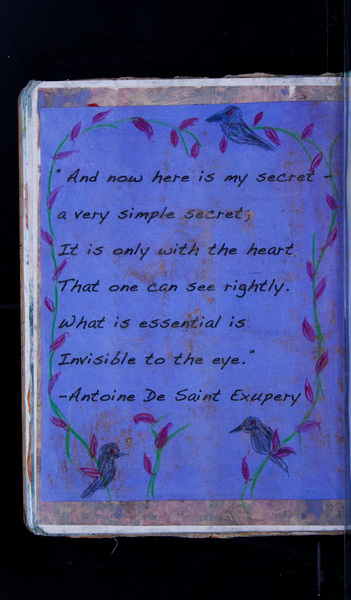 "And now here is my secret -
a very simple secret;
It is only with the heart
That one can see rightly.
What is essential is
Invisible to the eye."
-Antoine De Saint Exupery